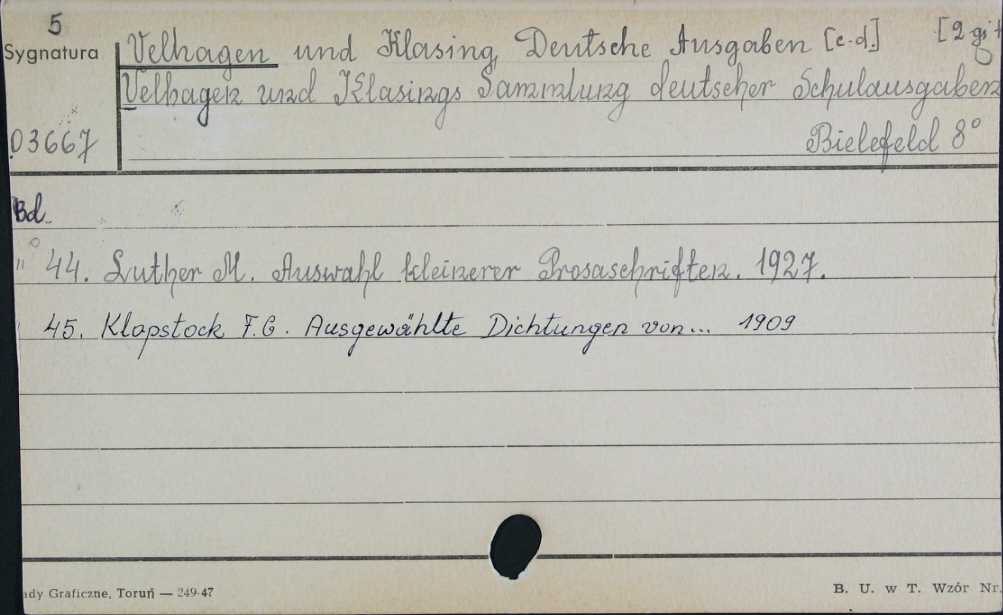 5
Sygnatura
Velhagen und Klasing, Deutsche Ausgaben [c.d.]
Velhagen und Klasings Sammlung deutscher Schulausgaben
03667
Bielefeld 8°
Bd.
" 44. Luther M. Auswahl kleinerer Prosaschriften. 1927.
45. Klopstock F.G. Ausgewählte Dichtungen von... 1909
ady Graficzne, Toruń — 249-47
B. U. w T. Wzór Nr.